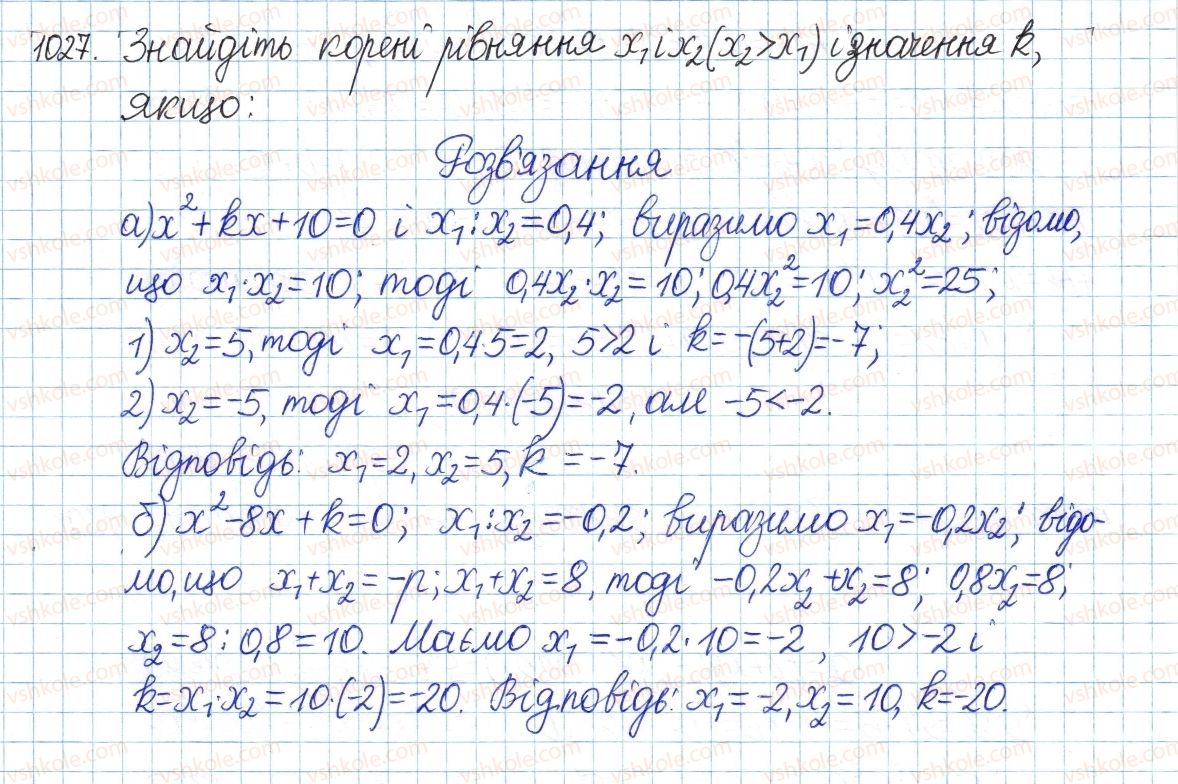 1027. Знайдіть корені рівняння x₁ і x₂ (x₂>x₁) і значення k,
якщо:
Розв'язання
а) x²+kx+10=0 і x₁:x₂=0,4; виразимо x₁=0,4x₂; відомо,
що x₁·x₂=10; тоді 0,4x₂·x₂=10; 0,4x₂²=10; x₂²=25;
1) x₂=5, тоді x₁=0,4·5=2, 5>2 і k=-(5+2)=-7;
2) x₂=-5, тоді x₁=0,4·(-5)=-2, але -5<-2.
Відповідь: x₁=2, x₂=5, k=-7.
б) x²-8x+k=0; x₁:x₂=-0,2; виразимо x₁=-0,2x₂; відо-
мо, що x₁+x₂=-p; x₁+x₂=8, тоді -0,2x₂+x₂=8; 0,8x₂=8;
x₂=8:0,8=10. Маємо x₁=-0,2·10=-2, 10>-2 і
k=x₁·x₂=10·(-2)=-20. Відповідь: x₁=-2, x₂=10, k=-20.
vshkole.com